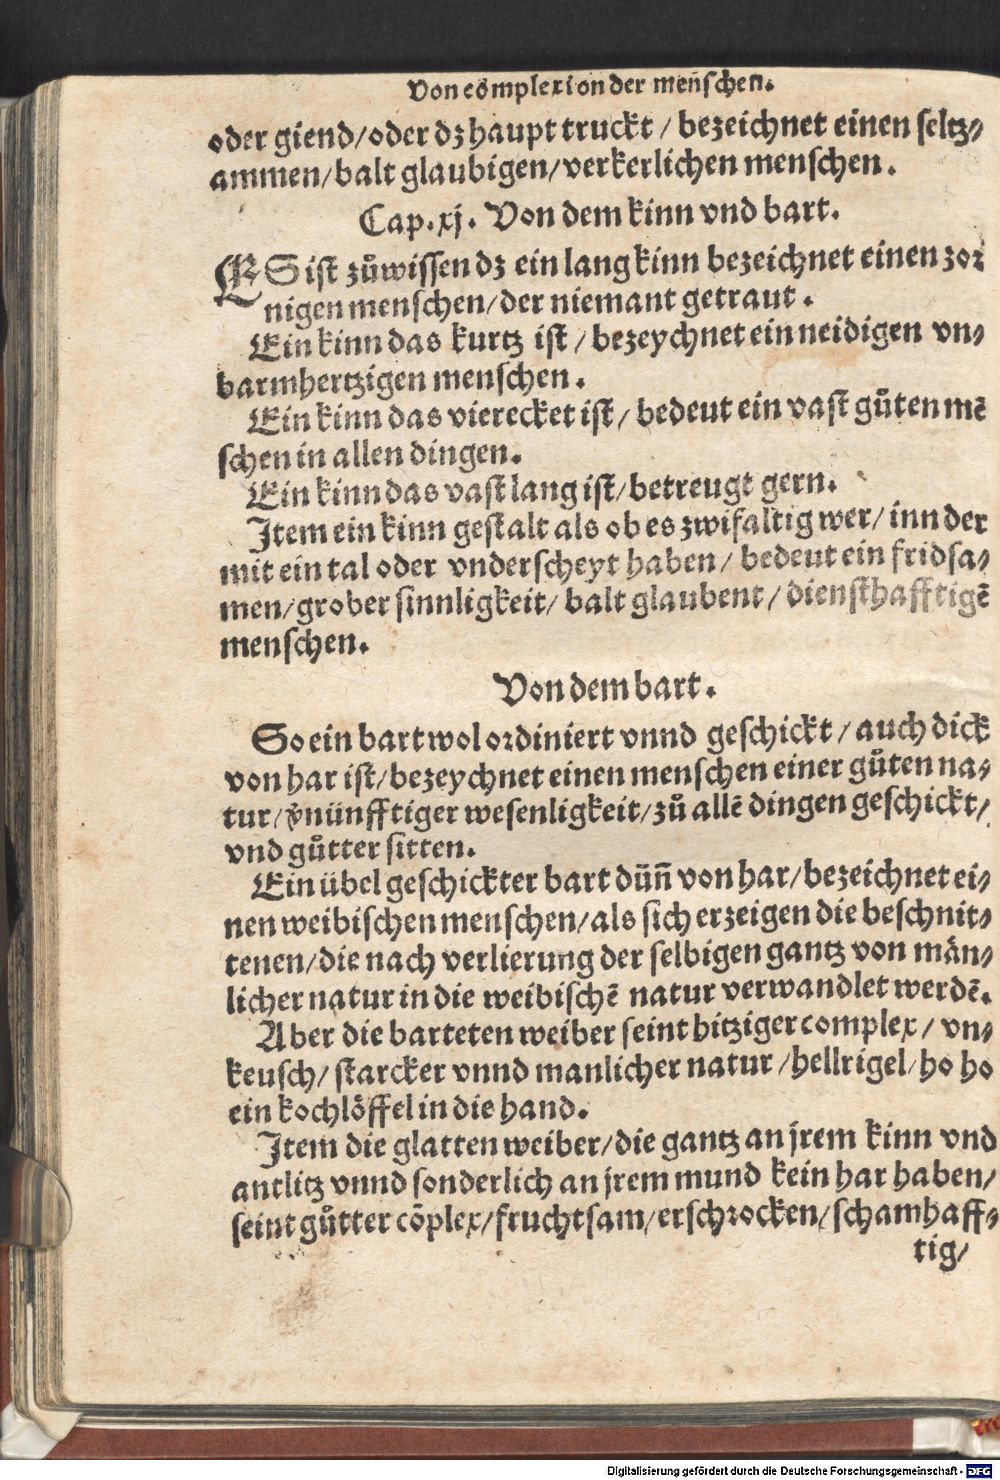 Von complexion der mēnschen.
oder giend/oder dz haupt truckt / bezeichnet einen seltz⸗
ammen/balt glaubigen/verkerlichen menschen.
Cap.xj. Von dem kinn vnd bart.
ES ist zůwissen dz ein lang kinn bezeichnet einen zor
nigen menschen/der niemant getraut.
Ein kinn das kurtz ist / bezeychnet ein neidigen vn⸗
barmhertzigen menschen.
Ein kinn das vierecket ist/ bedeut ein vast gůten mē
schen in allen dingen.
Ein kinn das vast lang ist/betreugt gern.
Item ein kinn gestalt als ob es zwifaltig wer/ inn der
mit ein tal oder vnderscheyt haben/ bedeut ein fridsa⸗
men/grober sinnligkeit/ balt glaubent/ diensthafftigē
menschen.
Von dem bart.
So ein bart wol ordiniert vnnd geschickt/auch dick
von har ist/bezeychnet einen menschen einer gůten na⸗
tur/v̄nünfftiger wesenligkeit/zů allē dingen geschickt/
vnd gůtter sitten.
Ein übel geschickter bart dün̄ von har/bezeichnet ei⸗
nen weibischen menschen/als sich erzeigen die beschnit⸗
tenen/die nach verlierung der selbigen gantz von män⸗
licher natur in die weibischē natur verwandlet werdē.
Aber die barteten weiber seint hitziger complex/ vn⸗
keusch/ starcker vnnd manlicher natur/hellrigel/ho ho
ein kochlöffel in die hand.
Item die glatten weiber/die gantz an jrem kinn vnd
antlitz vnnd sonderlich an jrem mund kein har haben/
seint gůtter cōplex/fruchtsam/erschrocken/schamhaff⸗
tig/
Digitalisierung gefördert durch die Deutsche Forschungsgemeinschaft - DFG